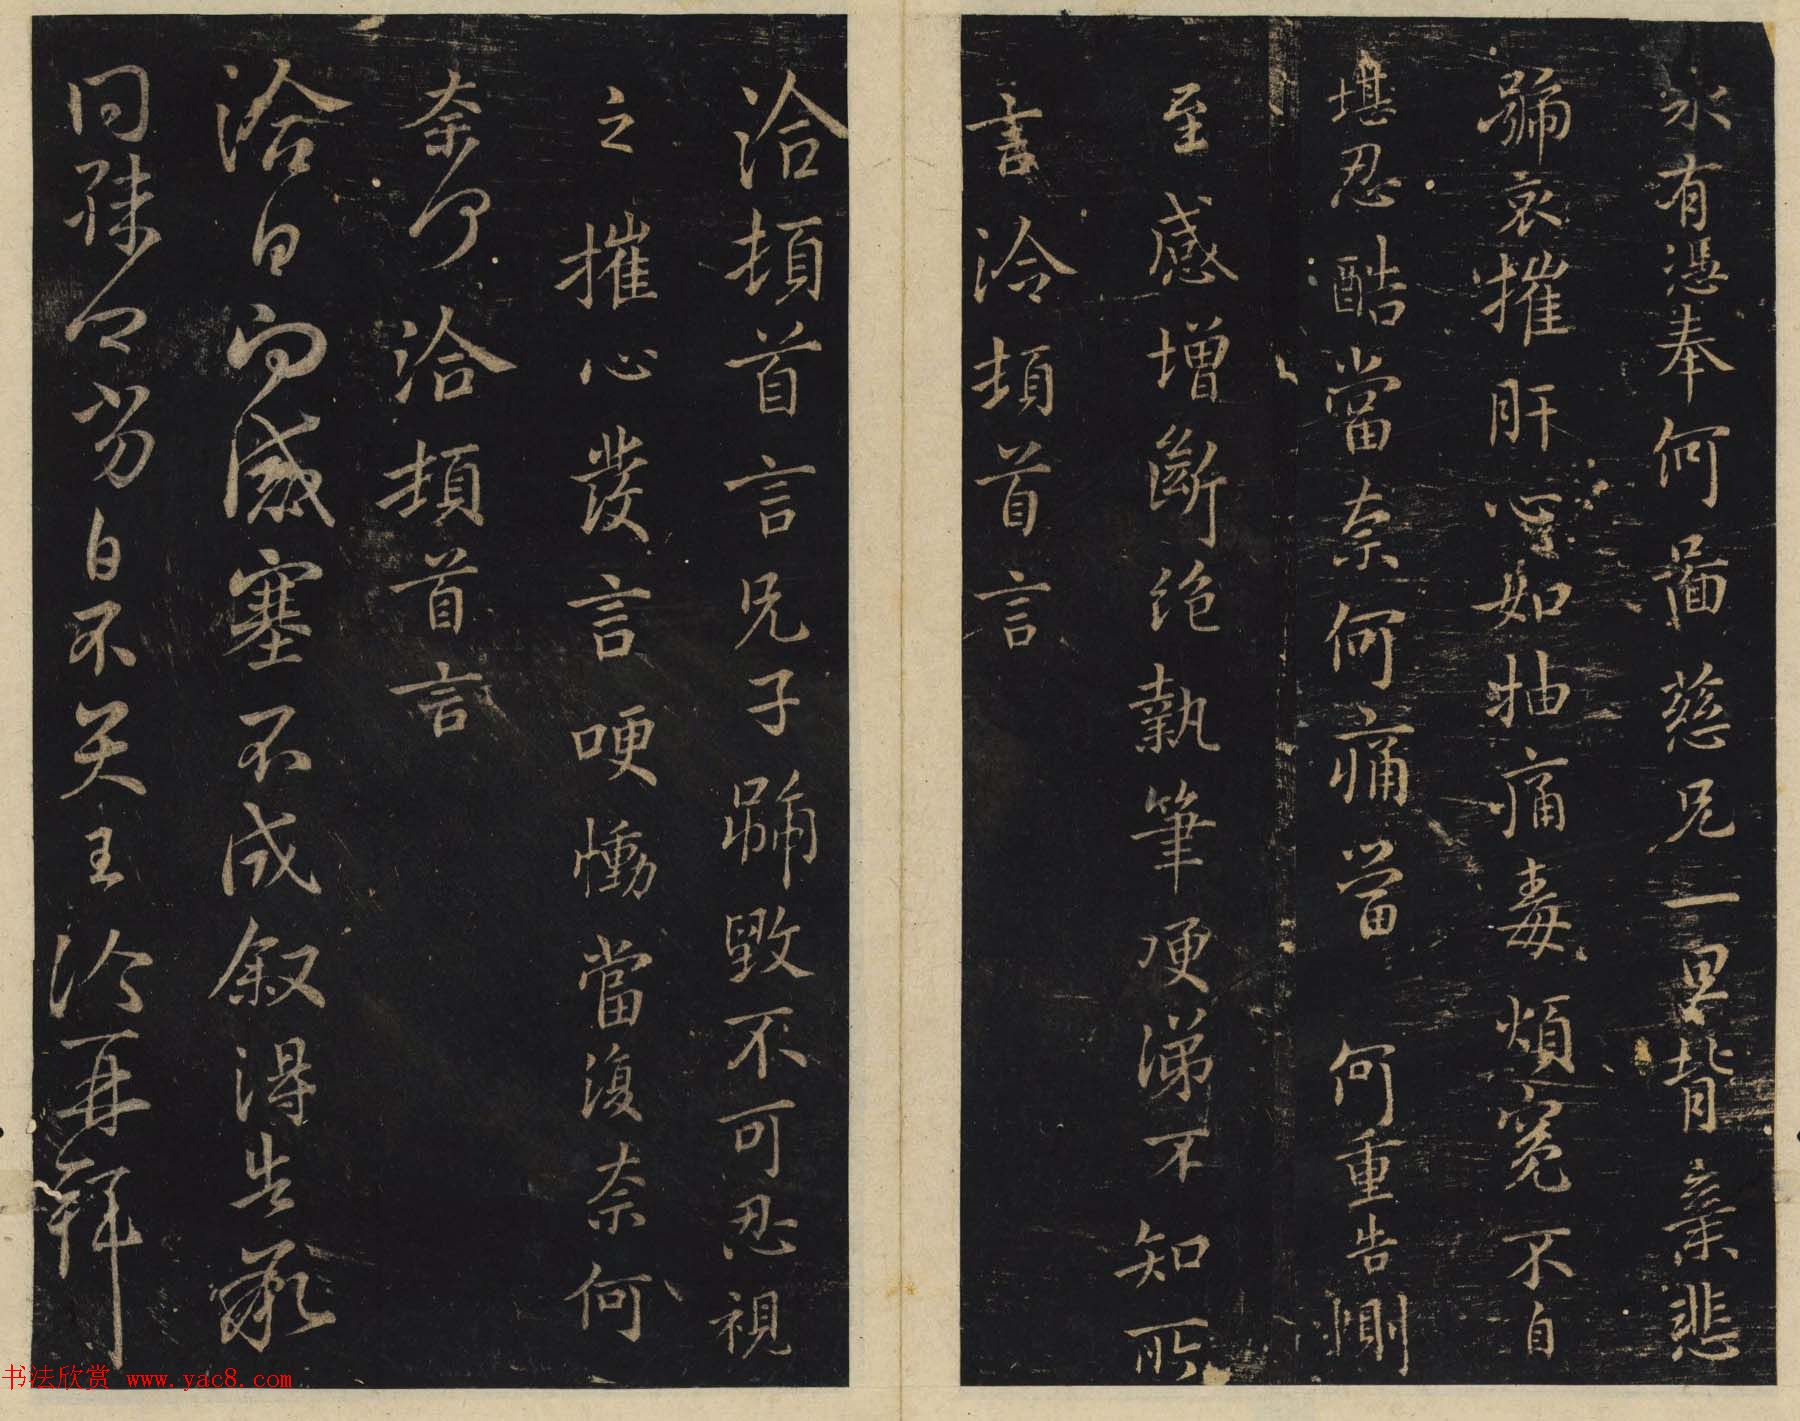 永有憑奉何啚慈兄一旦背棄悲
號哀摧肝心如抽痛毒煩冤不自
堪忍酷當奈何痛當 何重告惻
至感增斷絕執筆哽涕不知所
言洽頓首言
洽頓首言兄子號毀不可忍視
之摧心發言哽慟當復奈何
奈何洽頓首言
洽白向感塞不成叙得告承
问 自不 王洽再拜
书法欣赏 www.yac8.com